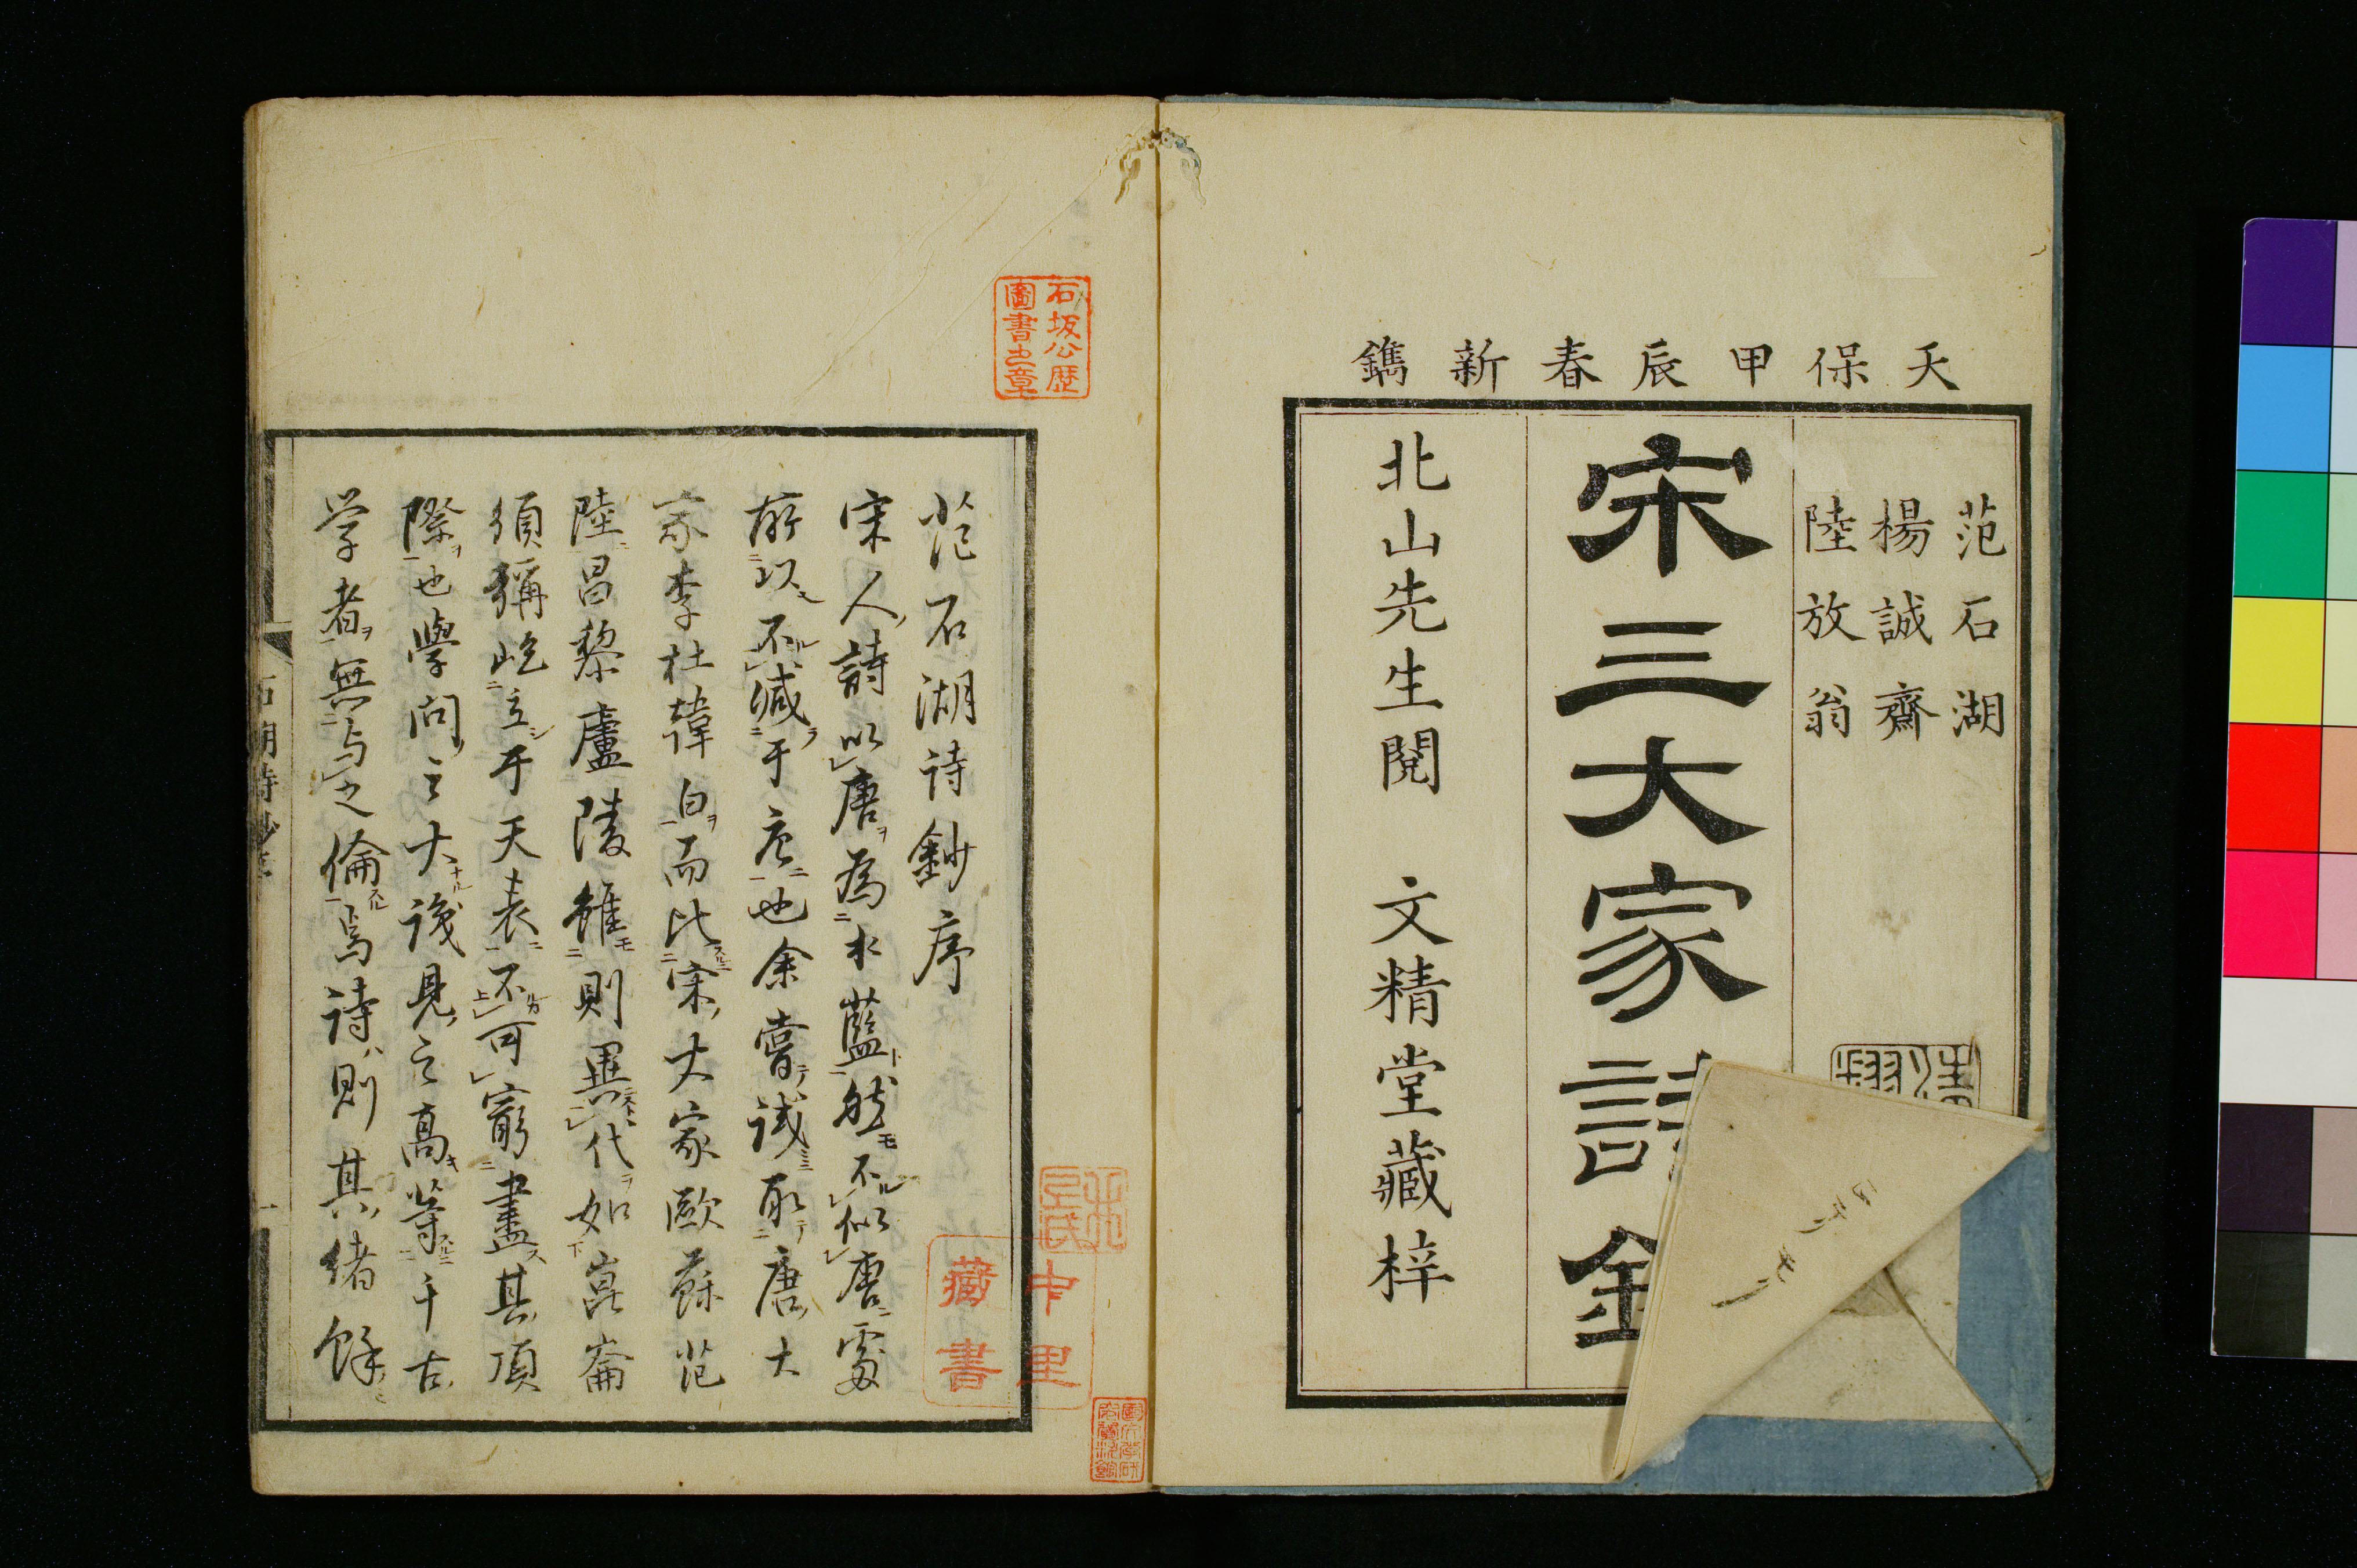 天保甲辰春新鐫
范石湖
楊誠齋
陸放翁
宋三大家詩
北山先生閱　文精堂藏梓
石坂公歷
圖書之章
范石湖诗鈔序
宋人詩以唐為本藍然不似唐處
所以不減于唐也余嘗試取唐大
家李杜韓白而比宋大家歐蘇范
陸昌黎廬陵雖則異代如崑崙
須稱屹立于天表不可窮盡其頂
際也學問之大識見之高等千古
学者無与之倫焉诗則其緒餘
中里
藏書